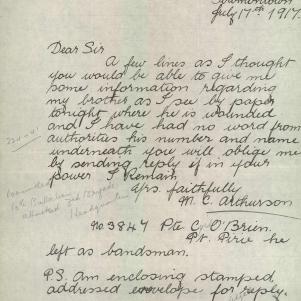 July 17th 1917
Dear Sir
A few lines as I thought
you would be able to give me
some information regarding
my brother as I see by paper
tonight where he is wounded
and I have had no word from
authorities his number and name
underneath you will oblige me
by sending reply if in your
power I Remain
yrs. faithfully
M. C. Arthurson
No 3847 Pte C. O'Brien
Pt. Pirie he
left as bandsman.
P.S. Am enclosing stamped
addressed envelope for reply.